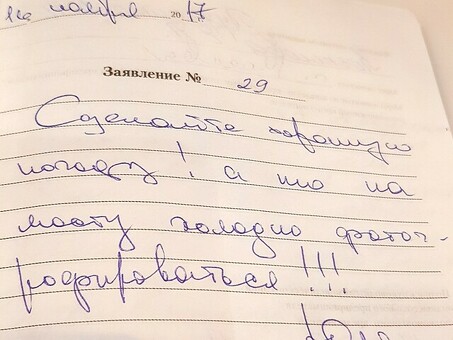 ноября 2017
Заявление № 29
Сделайте хорошую
погоду! а то на
мосту холодно фотог-
рафироваться!!!